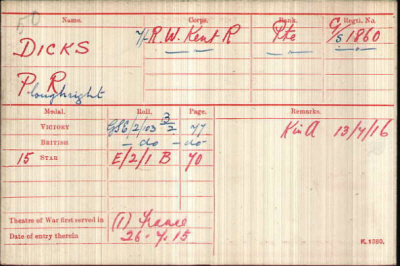 Name. Corps. Rank. Regtl. No.
DICKS 7/R.W. Kent R Pte G/S 1860
P. R
loughright
Medal. Roll. Page. Remarks.
VICTORY GS6/2/103 3/2 77 KinA 13/7/16
BRITISH - do - do -
15 STAR E/2/1 B 70
Theatre of War first served in (1) France
Date of entry therein 26.7.15
K.1380.